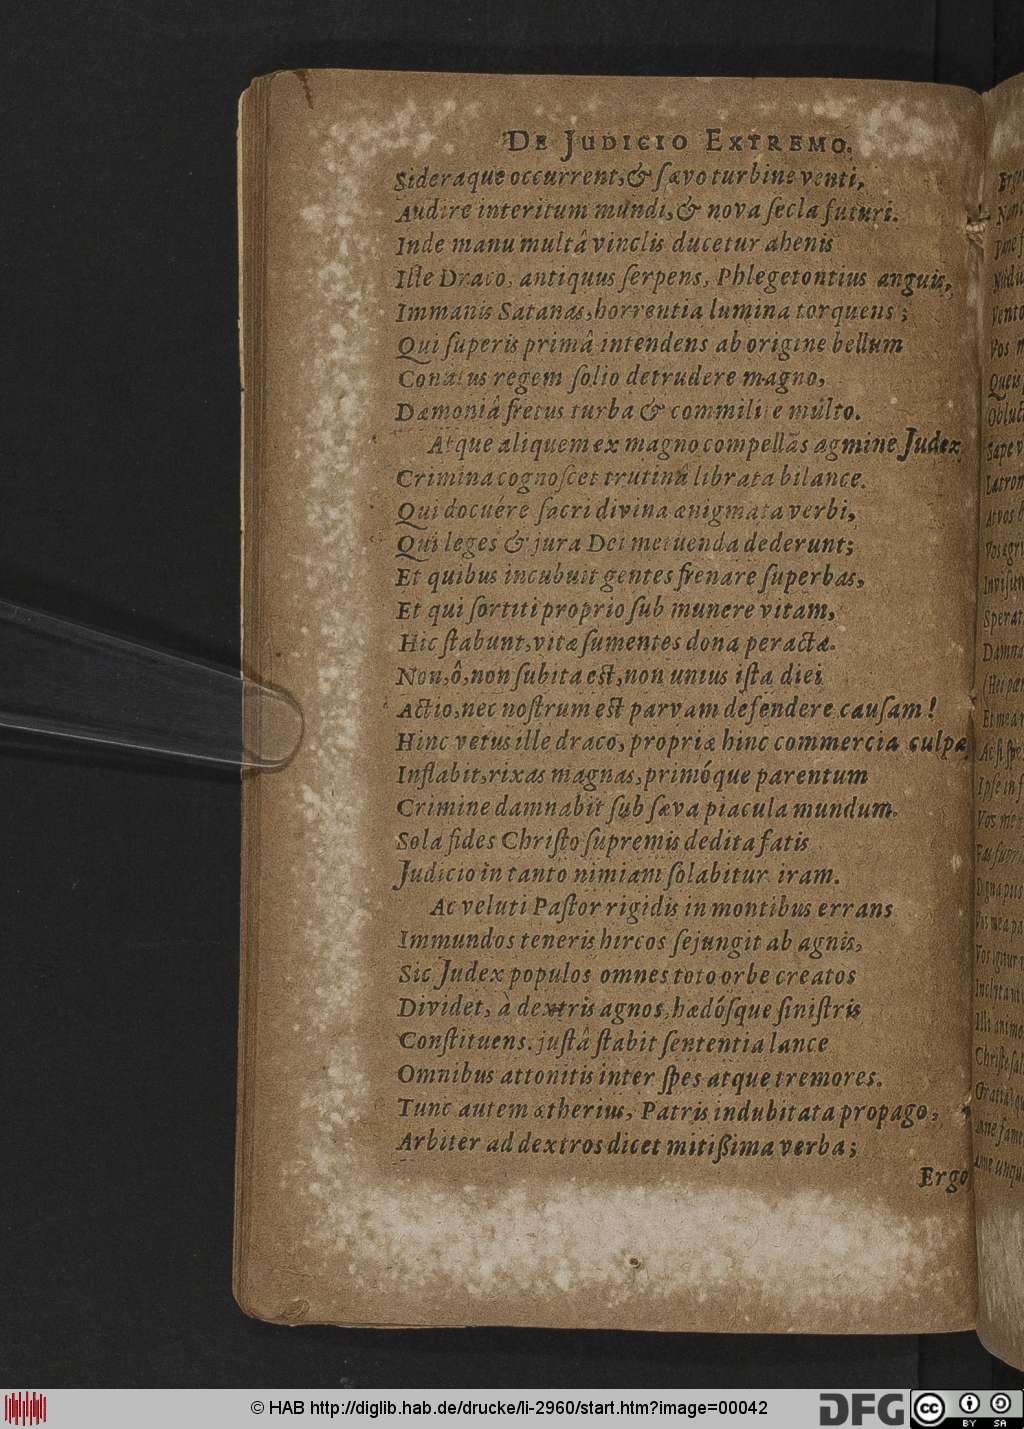 DE JUDICIO EXTREMO.
Sideraque occurrent, & sævo turbine venti,
Audire interitum mundi, & nova secla futuri.
Inde manu multâ vinclis ducetur ahenis
Ille Draco, antiquus serpens, Phlegetontius anguis,
Immanis Satanas, horrentia lumina torquens;
Qui superis primâ intendens ab origine bellum
Conatus regem solio detrudere magno,
Dæmoniâ fretus turba & commilite multo.
Atque aliquem ex magno compellãs agmine Judex
Crimina cognoscet trutinâ librata bilance.
Qui docuére sacri divina ænigmata verbi,
Qui leges & jura Dei metuenda dederunt;
Et quibus incubuit gentes frenare superbas,
Et qui sortiti proprio sub munere vitam,
Hic stabunt, vitæ sumentes dona peractæ.
Non, ô, non subita est, non unius ista diei
Actio, nec nostrum est parvam defendere causam!
Hinc vetus ille draco, propriæ hinc commercia culpæ
Inflabit, rixas magnas, primóque parentum
Crimine damnabit sub sæva piacula mundum.
Sola fides Christo supremis dedita fatis
Judicio in tanto nimiam solabitur iram.
Ac veluti Pastor rigidis in montibus errans
Immundos teneris hircos sejungit ab agnis,
Sic Judex populos omnes toto orbe creatos
Dividet, à dextris agnos, hædósque sinistris
Constituens. justâ stabit sententia lance
Omnibus attonitis inter spes atque tremores.
Tunc autem ætherius, Patris indubitata propago,
Arbiter ad dextros dicet mitißima verba;
Ergo
© HAB http://diglib.hab.de/drucke/li-2960/start.htm?image=00042
DFG
cc
BY SA